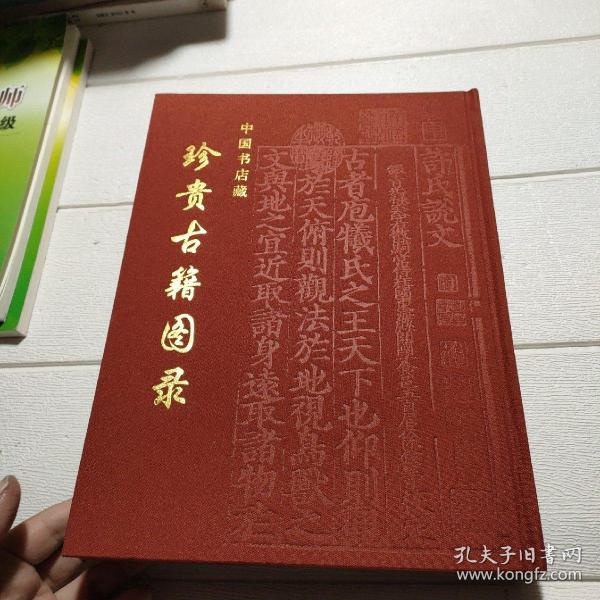 中国书店藏
珍贵古籍图录
许氏說文
古者庖犧氏之王天下也仰則觀
於天俯則觀法於地視鳥獸之
文與地之宜近取諸身遠取諸物於
师
级
孔夫子旧书网
www.kongfz.com